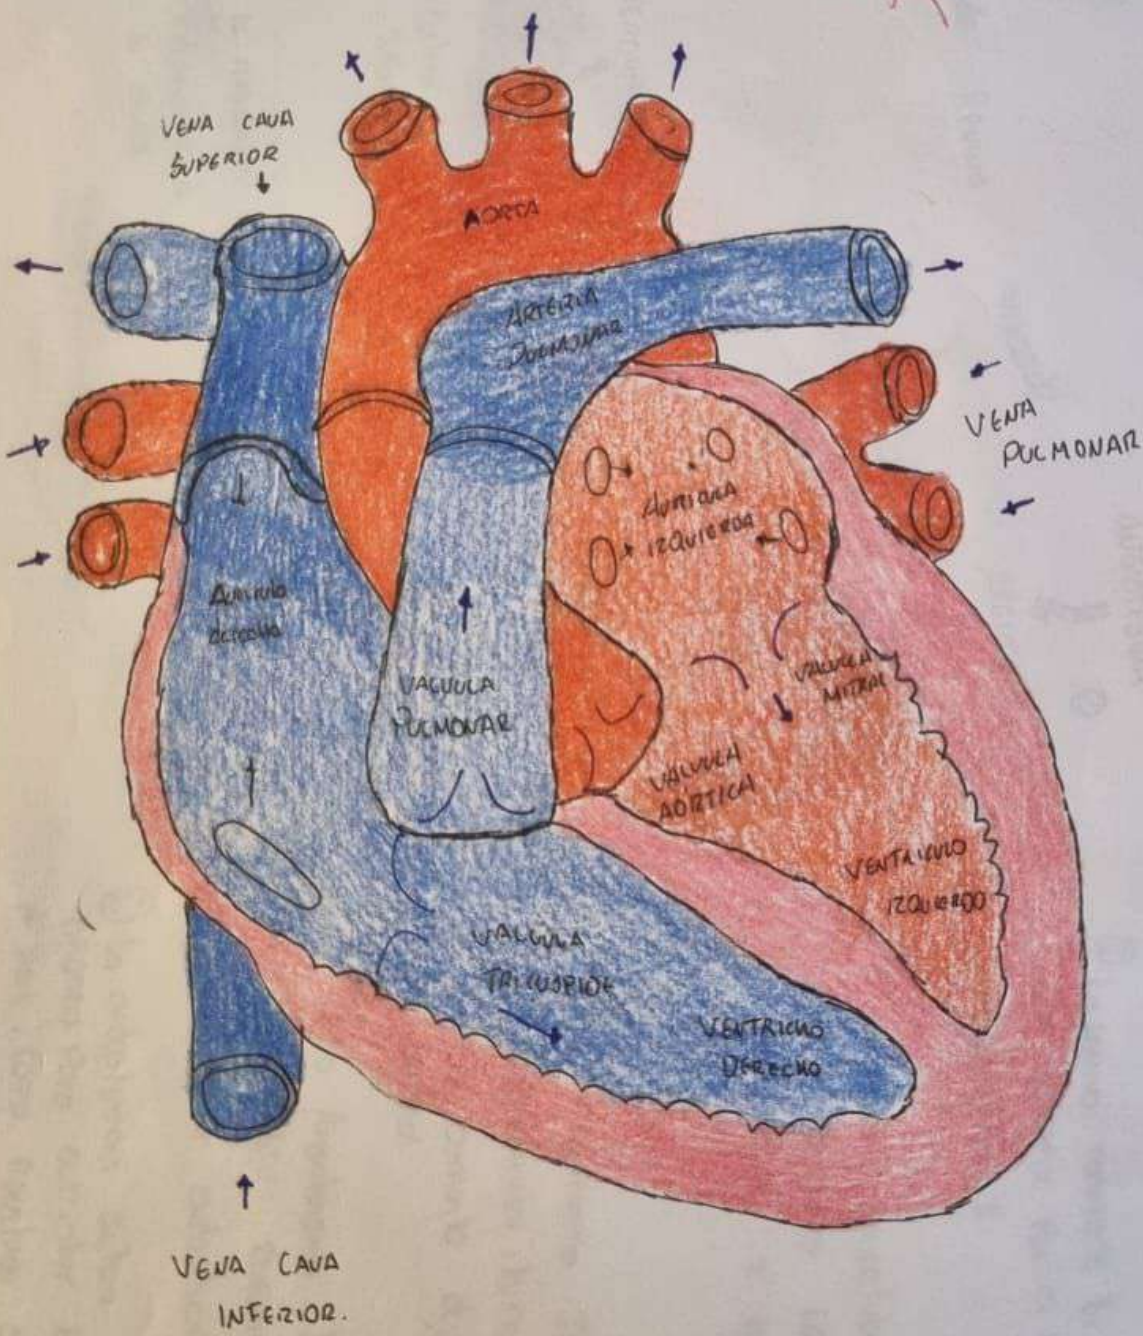 VENA CAVA
SUPERIOR
AORTA
ARTERIA
PULMONAR
VENA
PULMONAR
AURICULA
IZQUIERDA
VALVULA
PULMONAR
VALVULA
MITRAL
VALVULA
AÓRTICA
VENTRICULO
IZQUIERDO
VALVULA
TRICUSPIDE
VENTRICULO
DERECHO
VENA CAVA
INFERIOR.